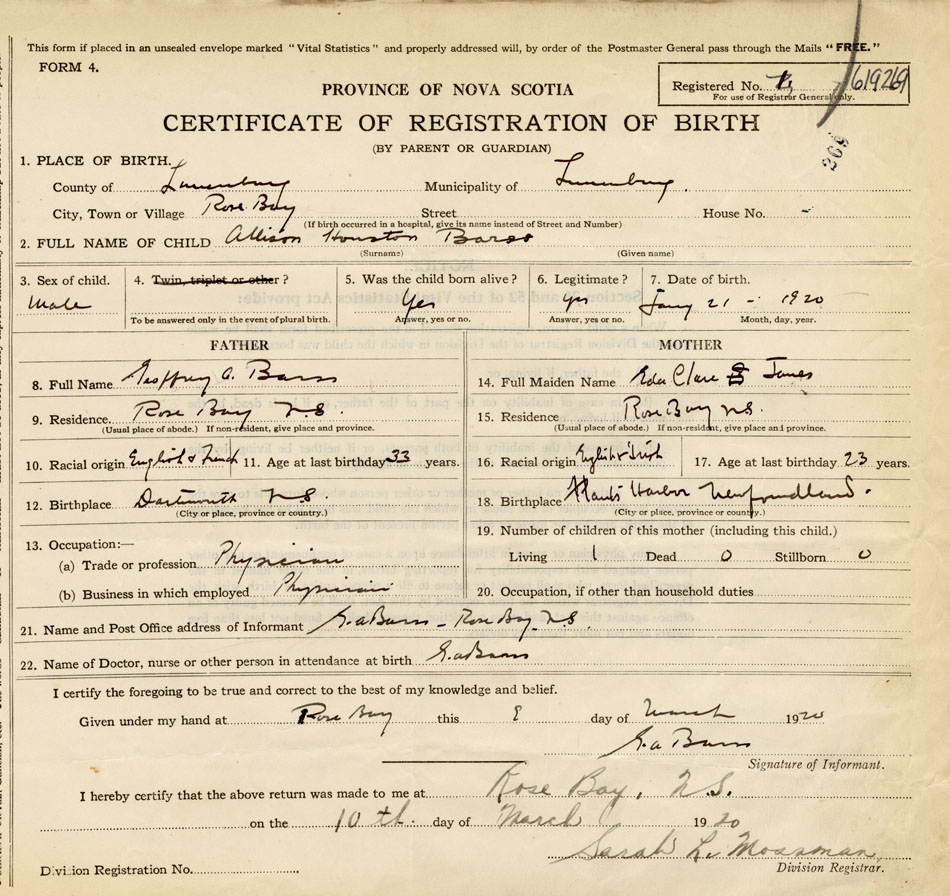 This form if placed in an unsealed envelope marked "Vital Statistics" and properly addressed will, by order of the Postmaster General pass through the Mails "FREE."
FORM 4.
Registered No. 619269
For use of Registrar General only.
PROVINCE OF NOVA SCOTIA
CERTIFICATE OF REGISTRATION OF BIRTH
(BY PARENT OR GUARDIAN)
309
1. PLACE OF BIRTH.
County of Lunenburg Municipality of Lunenburg.
City, Town or Village Rose Bay Street House No. -
(If birth occurred in a hospital, give its name instead of Street and Number)
2. FULL NAME OF CHILD Allison Houston Barss
(Surname) (Given name)
3. Sex of child. 4. Twin, triplet or other? 5. Was the child born alive? 6. Legitimate? 7. Date of birth.
Male Yes Yes Jany 21 - 1920
To be answered only in the event of plural birth. Answer, yes or no. Answer, yes or no. Month, day, year.
FATHER MOTHER
8. Full Name Geoffrey A. Barss 14. Full Maiden Name Eda Clare Jones
9. Residence Rose Bay N.S. 15. Residence Rose Bay N.S.
(Usual place of abode.) If non-resident, give place and province. (Usual place of abode.) If non-resident, give place and province.
10. Racial origin English & French 11. Age at last birthday 33 years. 16. Racial origin English & Irish 17. Age at last birthday 23 years.
12. Birthplace Dartmouth N.S 18. Birthplace Harbor Newfoundland.
(City or place, province or country.) (City or place, province or country.)
13. Occupation:— 19. Number of children of this mother (including this child.)
(a) Trade or profession Physician Living 1 Dead 0 Stillborn 0
(b) Business in which employed Physician 20. Occupation, if other than household duties
21. Name and Post Office address of Informant G.A Barss - Rose Bay N.S.
22. Name of Doctor, nurse or other person in attendance at birth G.A Barss
I certify the foregoing to be true and correct to the best of my knowledge and belief.
Given under my hand at Rose Bay this day of March 1920
G.A Barss
Signature of Informant.
I hereby certify that the above return was made to me at Rose Bay, N.S.
on the 10th. day of March 1920
Sarah L. Mossman,
Division Registrar.
Division Registration No.